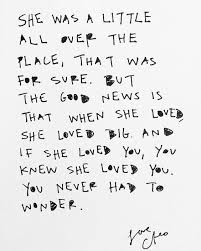 SHE WAS A LITTLE
ALL OVER THE
PLACE, THAT WAS
FOR SURE. BUT
THE GOOD NEWS IS
THAT WHEN SHE LOVED
SHE LOVED BIG. AND
IF SHE LOVED YOU, YOU
KNEW SHE LOVED YOU.
YOU NEVER HAD TO
WONDER.